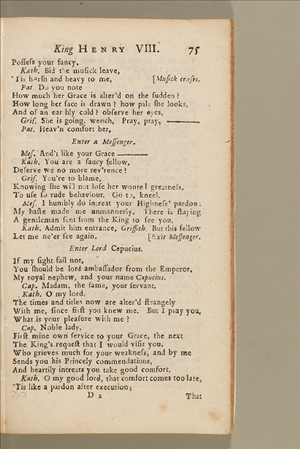 King HENRY VIII. 75
Possess your fancy.
Kath. Bid the musick leave,
'Tis harsh and heavy to me, [Musick ceases.
Pat. Do you note
How much her Grace is alter'd on the sudden?
How long her face is drawn? how pale she looks,
And of an earthly cold? observe her eyes.
Grif. She is going, wench, Pray, pray, ———
Pat. Heav'n comfort her,
Enter a Messenger.
Mes. And't like your Grace ———
Kath. You are a saucy fellow,
Deserve we no more rev'rence?
Grif. You're to blame,
Knowing she will not lose her wonted greatness,
To use so rude behaviour. Go to, kneel.
Mes. I humbly do intreat your Highness' pardon:
My haste made me unmannerly. There is staying
A gentleman sent from the King to see you.
Kath. Admit him entrance, Griffith. But this fellow
Let me ne'er see again. [Exit Messenger.
Enter Lord Capucius.
If my sight fail not,
You should be lord ambassador from the Emperor,
My royal nephew, and your name Capucius.
Cap. Madam, the same, your servant.
Kath. O my lord.
The times and titles now are alter'd strangely
With me, since first you knew me. But I pray you,
What is your pleasure with me?
Cap. Noble lady,
First mine own service to your Grace, the next
The King's request that I would visit you,
Who grieves much for your weakness, and by me
Sends you his Princely commendations,
And heartily intreats you take good comfort.
Kath. O my good lord, that comfort comes too late,
'Tis like a pardon after execution;
D 2 That